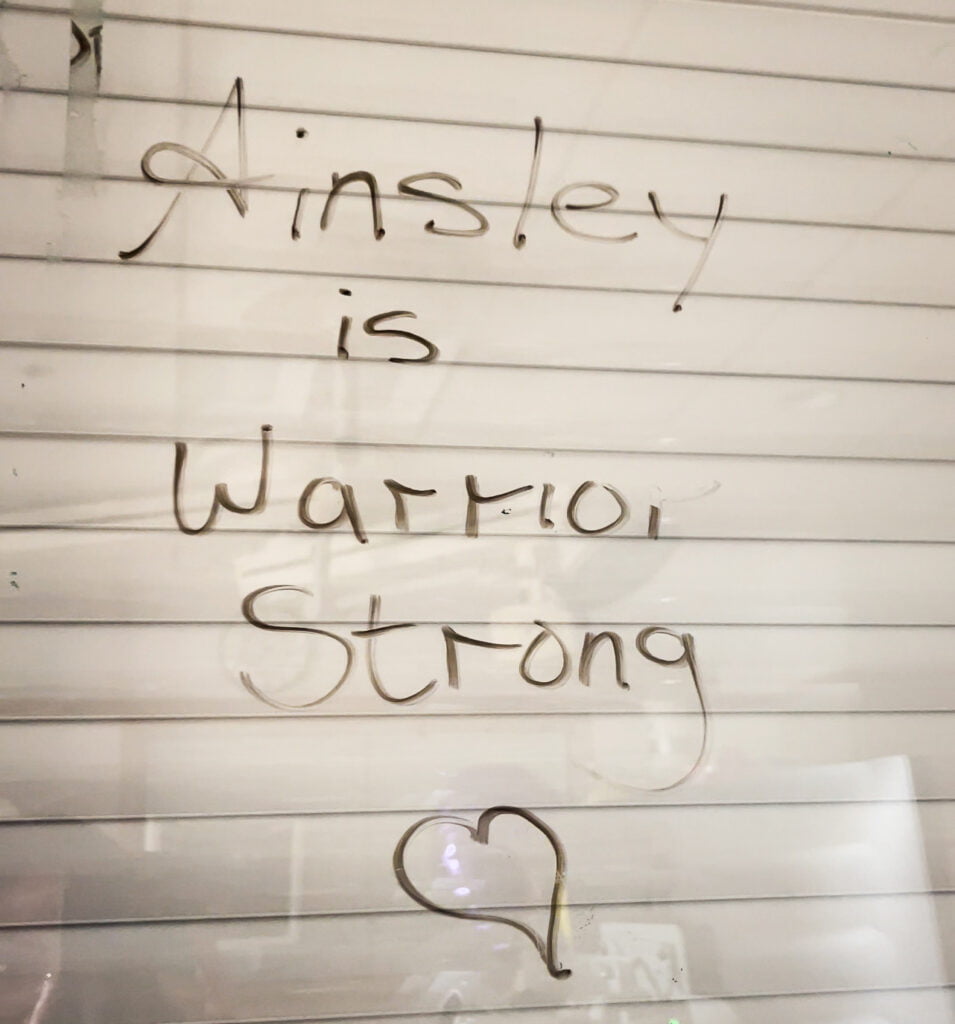 Ainsley
is
Warrior
Strong